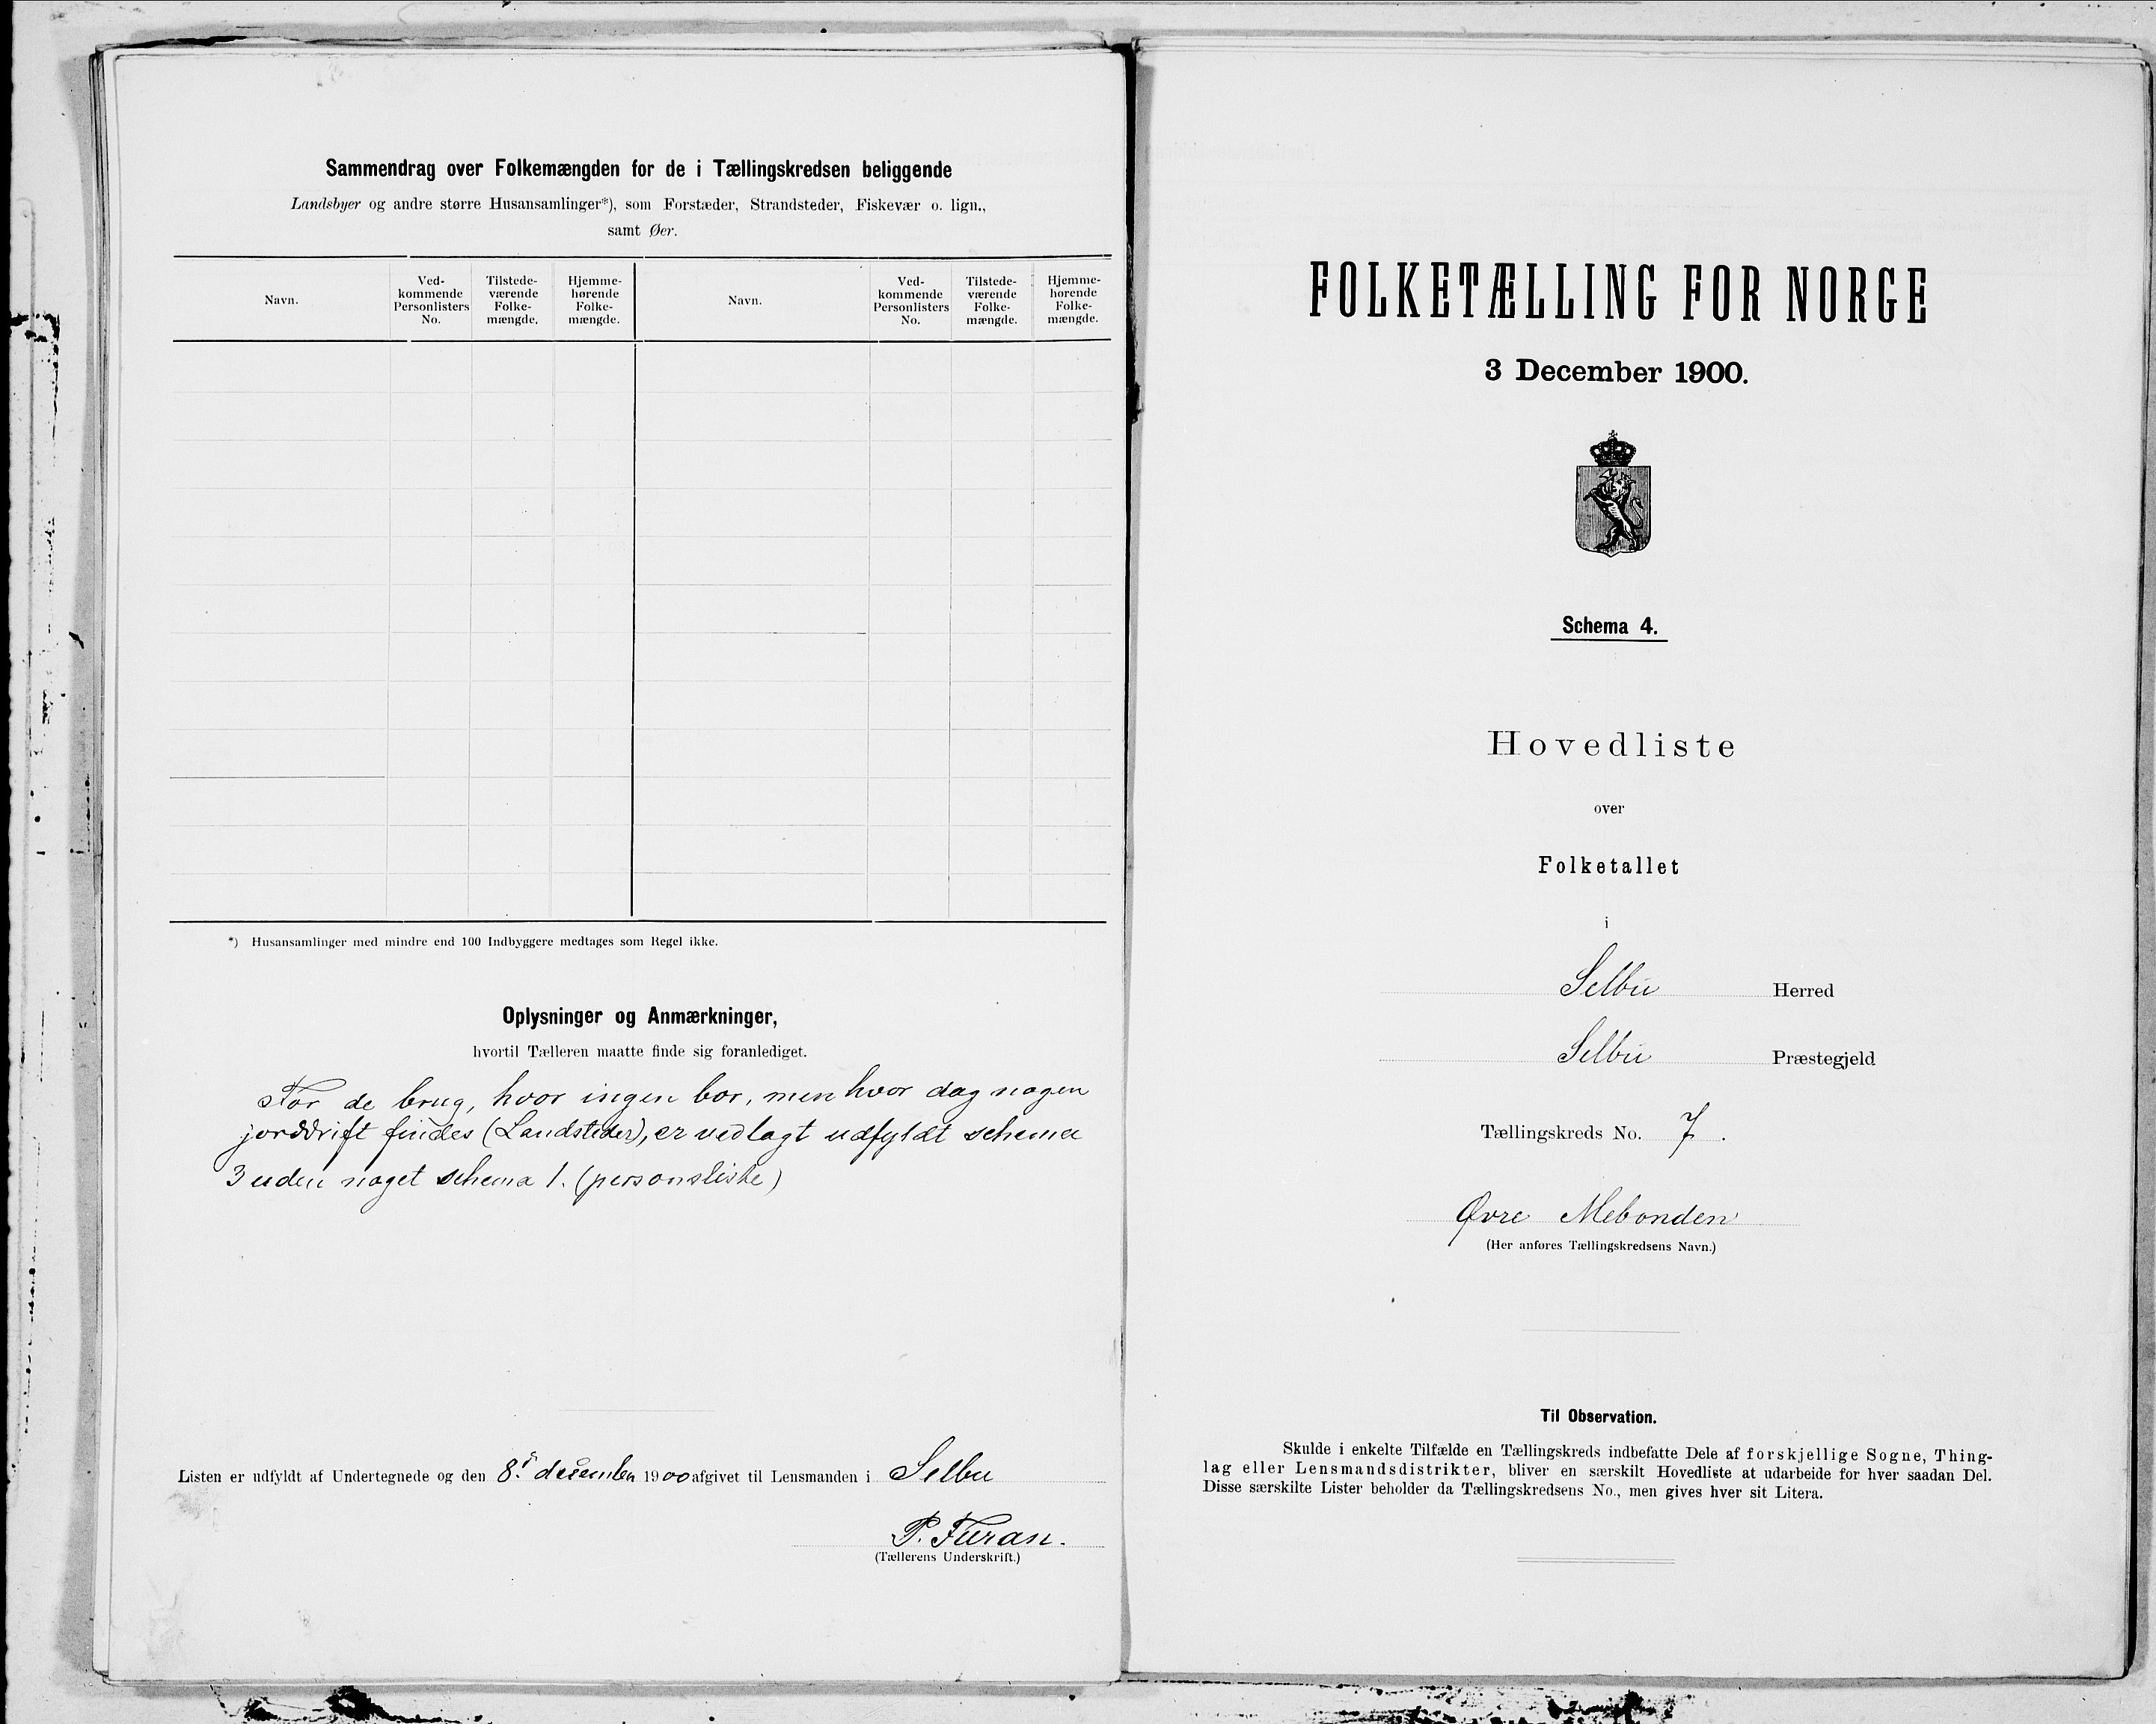 Sammendrag over Folkemængden for de i Tællingskredsen beliggende
Landsbyer og andre større Husansamlinger*), som Forstæder, Strandsteder, Fiskevær o. lign.,
samt Øer.
Navn.
Ved-
kommende
Personlisters
No.
Tilstede-
værende
Folke-
mængde.
Hjemme-
hørende
Folke-
mængde.
Navn.
Ved-
kommende
Personlisters
No.
Tilstede-
værende
Folke-
mængde.
Hjemme-
hørende
Folke-
mængde.
*) Husansamlinger med mindre end 100 Indbyggere medtages som Regel ikke.
Oplysninger og Anmærkninger,
hvortil Tælleren maatte finde sig foranlediget.
For de brug, hvor ingen bor, men hvor dog nogen
jorddrift findes (Landsteder), er vedlagt udfyldt schema
3 uden noget schema 1. (personsliste)
Listen er udfyldt af Undertegnede og den 8. december 1900 afgivet til Lensmanden i Selbu
P. Furan.
(Tællerens Underskrift.)
FOLKETÆLLING FOR NORGE
3 December 1900.
Schema 4.
Hovedliste
over
Folketallet
i
Selbu Herred
Selbu Præstegjeld
Tællingskreds No. 7.
Øvre Mebonden
(Her anføres Tællingskredsens Navn.)
Til Observation.
Skulde i enkelte Tilfælde en Tællingskreds indbefatte Dele af forskjellige Sogne, Thing-
lag eller Lensmandsdistrikter, bliver en særskilt Hovedliste at udarbeide for hver saadan Del.
Disse særskilte Lister beholder da Tællingskredsens No., men gives hver sit Litera.